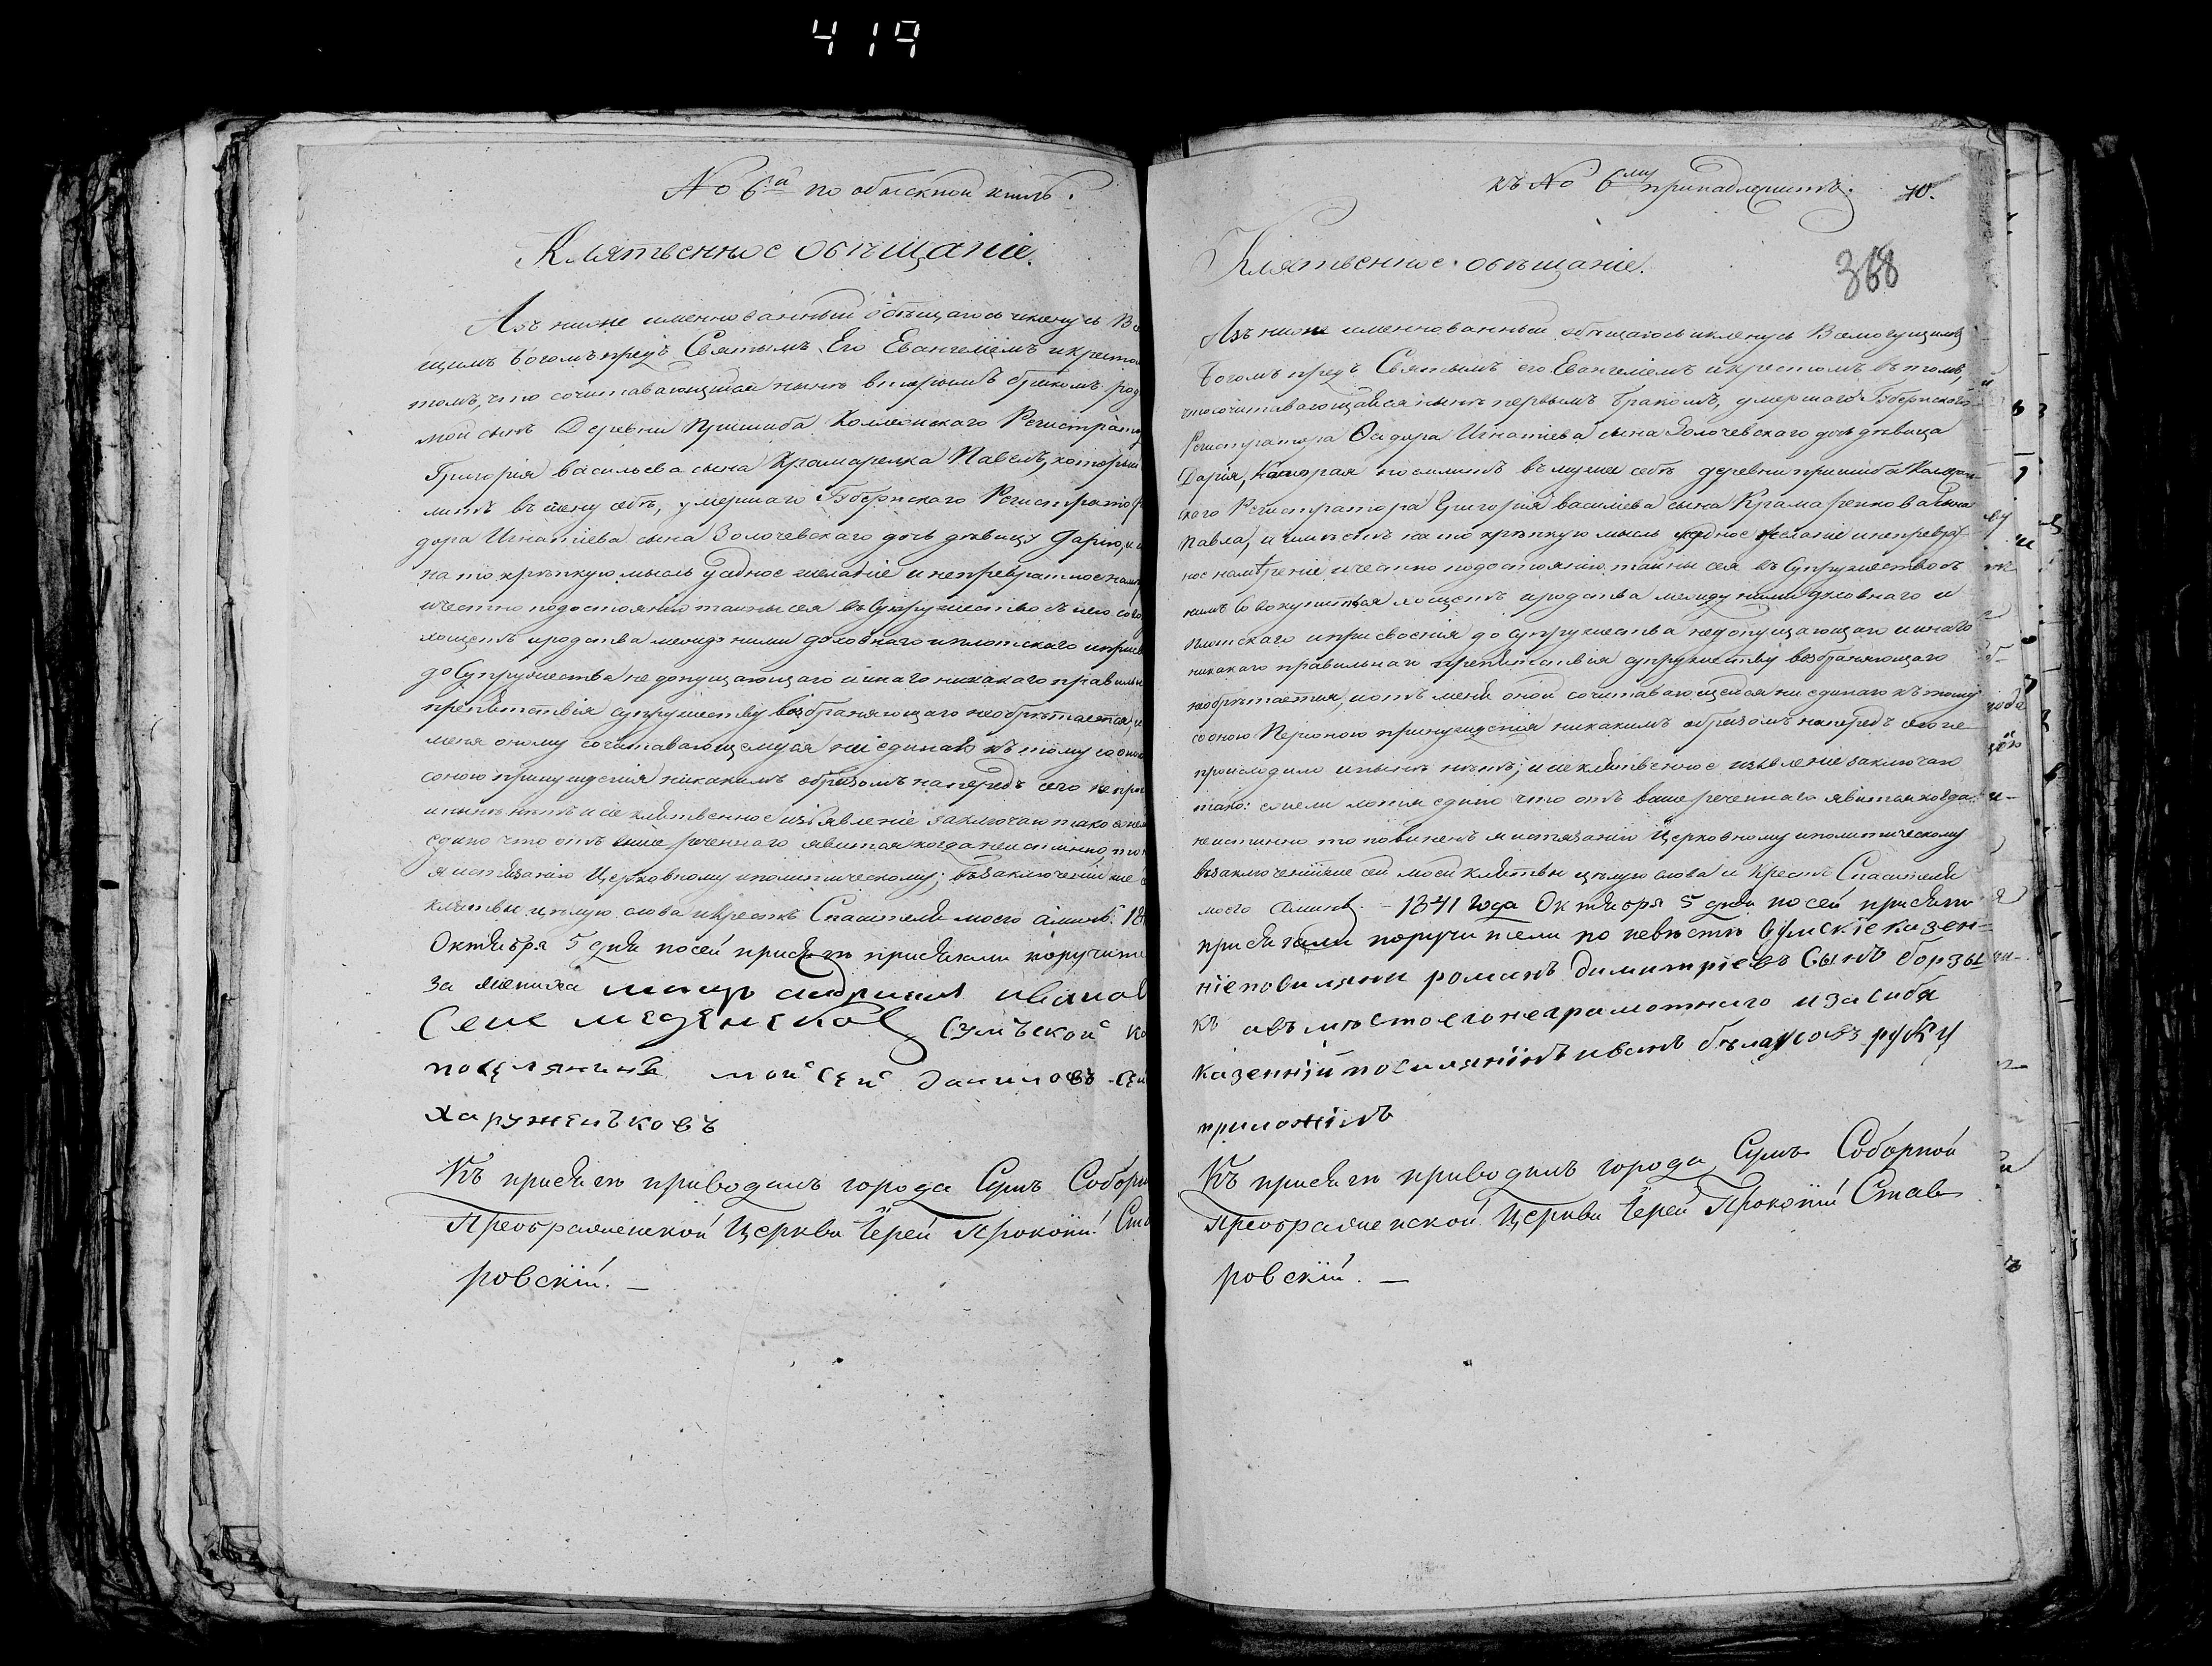 419
№ 6й по обыскной книгѣ.
Клятвенное обѣщаніе.
Азъ ниже именнованный обѣщаюсь иклянусь Все
щимъ Богомъ предъ Святымъ Его Евангеліемъ икресто
томъ, что сочитавающійся нынѣ вторымъ бракомъ род
мой сынъ Деревни Пришиба Коллежскаго Регистрато
Григорія васильева сына Крамаренка Павелъ, который
митъ въ жену себѣ, умершаго Губернскаго Регистратор
дора Игнатіева сына Золочевскаго дочь дѣвицу Дарію, и и
на то крѣпкую мысль усдное желаніе и непревратное намѣ
ичестно подостоянію тайны сея въ Супружество съ нею сово
хощетъ иродства между ними духовнаго иплотскаго иприсв
до Супружества не допущающаго и инаго никакаго правильн
препятствія супружеству возбраняющаго необрѣтается, и
меня оному сочитавающемуся ни единаго къ тому со оно
соною принужденія никакимъ образомъ напередъ сего не про
инынѣ нѣтъ и сіе клятвенное изъявленіе заключаю тако ежели
едино что отъ выше реченнаго явится когда неистинно, то
я истязанію Церковному иполитическому; въ заключеніи же
клятвы цѣлую слова икрестъ Спасителя моего аминь. 18
Октября 5 дня посей присягѣ присягали поручите
за жениха
Сумъской ка
поселянинъ мойсей даниловъ сы
харуженъковъ
Къ присягѣ приводилъ города Сумъ Соборн
Преображенской Церкви Іерей Прокопій Ста
ровскій. —
къ № 6му принадлежитъ.
70.
368
Клятвенное обѣщаніе.
Азъ ниже именнованный обѣщаюсь иклянусь Всемогущимъ
Богомъ предъ Святымъ его Евангеліемъ икрестомъ въ томъ,
что сочитавающаяся нынѣ первымъ Бракомъ, умершаго Губернскаго
Регистратора Ѳедора Игнатіева сына Золочевскаго дочь дѣвица
Дарія, Которая поемлитъ въ мужа себѣ деревни пришиба Коллеж-
скаго Регистратора Григорія васильева сына Крамаренкова сына
Павла, и имѣетъ на то крѣпкую мысль усдное желаніе инепреврат-
ное намѣреніе ичестно подостоянію тайны сея въ Супружество съ
нимъ Совокупиться хощетъ иродства между ними духовнаго и
плотскаго иприсвоенія до супружества недопущающаго иинаго
никакаго правильнаго препятствія супружеству возбраняющаго
необрѣтается, иотъ меня оной сочитавающейся ни единаго къ тому
сооною Персоною принужденія никакимъ образомъ напередъ сего не
происходило инынѣ нѣтъ; и сіе клятвенное изъявленіе заключаю
тако: ежели хотя едино что отъ выше реченнаго явится когда
неистинно то повиненъ я истязанію Церковному иполитическому
въ заключеніиже сей моей клятвы цѣлую слова и Крестъ Спасителя
моего Аминь. – 1841 года Октября 5 дня посей присягѣ
присягали поручители по невѣстѣ Сумскіе казен-
ніе повиляни романъ димитріевъ Сынъ борзы
къ авъ мѣсто его неграмотнаго иза сибя
казенній посилянінъ иванъ бѣлаусовъ руку
приложілъ
Къ присягѣ приводилъ города Сумъ Соборной
Преображенской Церкви Іерей Прокопій Став
ровскій. —